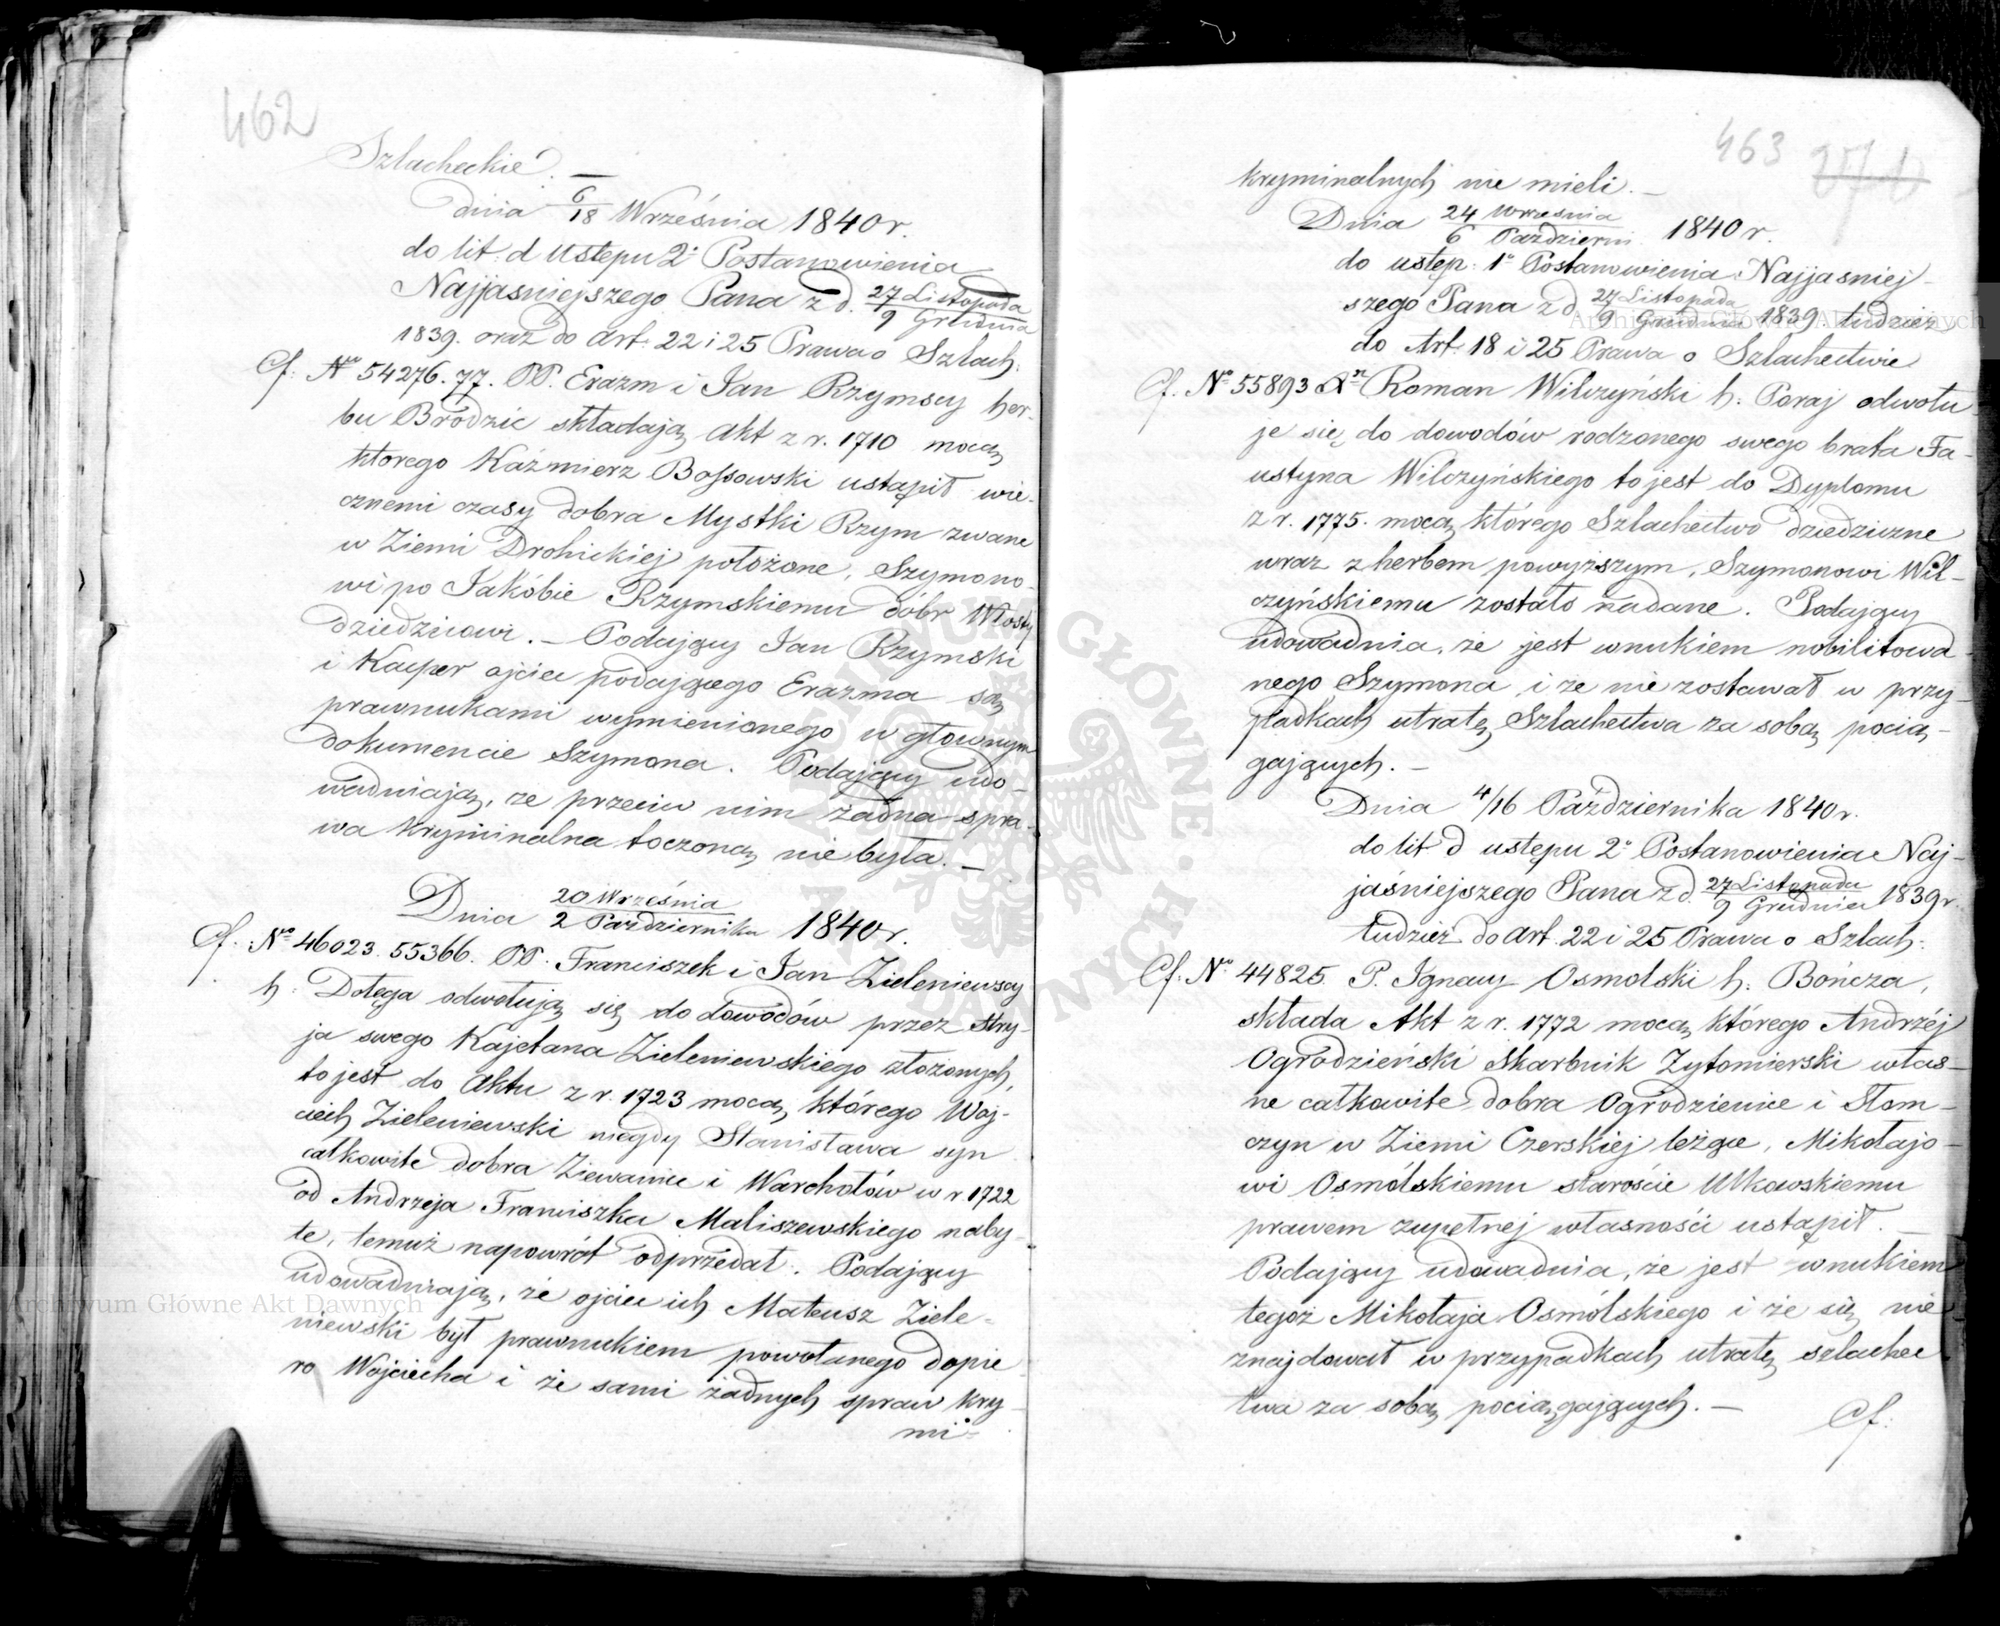 462
Szlacheckie. —
dnia 6/18 Września 1840 r.
do lit. d ustępu 2° Postanowienia
Najjasniejszego Pana z d. 27 Listopada / 9 Grudnia
1839. oraz do Art. 22 i 25 Prawa o Szlach.
Cf. No 54276.77. PP. Erazm i Jan Rzymscy her-
bu Brodzic składają Akt z r. 1710 mocą
którego Kaźmierz Bossowski ustąpił wie-
cznemi czasy dobra Mystki Rzym zwane
w Ziemi Drohickiej położone, Szymono-
wi po Jakóbie Rzymskiemu dóbr Włosty
dziedzicowi. — Podający Jan Rzymski
i Kacper ojciec podającego Erazma są
prawnukami wymienionego w głownym
dokumencie Szymona. Podający udo-
wadniają, że przeciw nim żadna spra-
wa kryminalna toczoną nie była. —
Dnia 20 Września / 2 Października 1840 r.
Cf. No 46023. 55366. PP. Franciszek i Jan Zieleniewscy
h. Dołęga odwołują się do dowodów przez stry-
ja swego Kajetana Zieleniewskiego złożonych,
to jest do Aktu z r. 1723 mocą którego Woj-
ciech Zieleniewski niegdy Stanisława syn
całkowite dobra Ziewanice i Warchołów w r 1722
od Andrzeja Franciszka Maliszewskiego naby-
te, temuż napowrót odprzedał. Podający
udowadniają, że ojciec ich Mateusz Ziele-
niewski był prawnukiem powołanego dopie-
ro Wojciecha i że sami żadnych spraw kry-
mi-
463
kryminalnych nie mieli. —
Dnia 24 Września / 6 Październi 1840 r.
do ustęp. 1° Postanowienia Najjasniej-
szego Pana z d 27 Listopada / 9 Grudnia 1839. tudzież
do Art. 18 i 25 Prawa o Szlachectwie
Cf. No 55893 Roman Wilczyński h. Poraj odwołu-
je się do dowodów rodzonego swego brata Fa-
ustyna Wilczyńskiego to jest do Dyplomu
z r. 1775. mocą którego Szlachectwo dziedziczne
wraz z herbem powyższym, Szymonowi Wil-
czyńskiemu zostało nadane. Podający
udowadnia, że jest wnukiem nobilitowa-
nego Szymona i że nie zostawał w przy-
padkach utratę Szlachectwa za sobą pocią-
gających. —
Dnia 4/16 Października 1840 r.
do lit d ustępu 2° Postanowienia Naj-
jaśniejszego Pana z d. 27 Listopada / 9 Grudnia 1839 r.
tudzież do Art. 22 i 25 Prawa o Szlach.
Cf. No 44825. P. Ignacy Osmolski h. Bończa,
składa Akt z r. 1772 mocą którego Andrzéj
Ogrodzieński Skarbnik Żytomierski włas-
ne całkowite dobra Ogrodzienice i Słom-
czyn w Ziemi Czerskiej leżące, Mikołajo-
wi Osmólskiemu staroście Ulkowskiemu
prawem zupełnej własności ustąpił. —
Podający udowadnia, że jest wnukiem
tegoż Mikołaja Osmólskiego i że się nie
znajdował w przypadkach utratę szlachec
twa za sobą pociągających. —
Cf.
Archiwum Główne Akt Dawnych
Archiwum Główne Akt Dawnych
ARCHIWUM GŁÓWNE AKT DAWNYCH